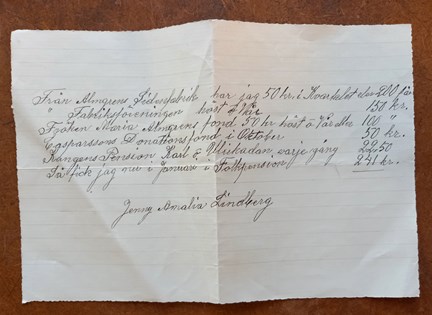 Från Almgrens Sidenfabrik har jag 50 kr. i Kvartalet 200
Fabriksföreningen höst o Vår 150 kr.
Fröken Maria Almgrens fond 50 kr höst o Vår 100 "
Casparssons Donationsfond i Oktober 50 kr.
Kungens Pension Karl varje gång 22.50
Så fick jag nu i januari i Folkpension 241 kr.
Jenny Amalia Lindberg